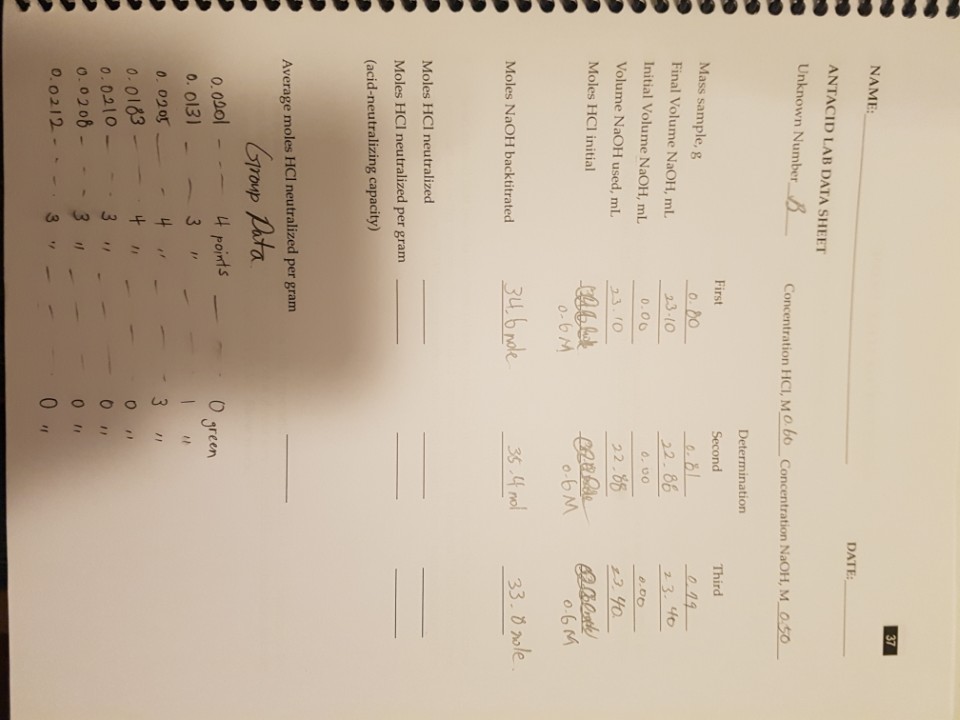 37
NAME: DATE:
ANTACID LAB DATA SHEET
Unknown Number B Concentration HCl, M 0.60 Concentration NaOH, M 0.50
Determination
First Second Third
Mass sample, g 0.80 0.81 0.79
Final Volume NaOH, mL 23.10 22.88 23.40
Initial Volume NaOH, mL 0.00 0.00 0.00
Volume NaOH used, mL 23.10 22.88 23.40
Moles HCl initial
0.6M 0.6M 0.6M
Moles NaOH backtitrated 34.6 mole 35.4 mol 33.8 mole.
Moles HCl neutralized
Moles HCl neutralized per gram
(acid-neutralizing capacity)
Average moles HCl neutralized per gram
Group Data
0.0201 - - 4 points - - 0 green
0.0131 - - 3 " - - 1 "
0.0205 - - 4 " - - 3 "
0.0183 - - 4 " - - 0 "
0.0210 - - 3 " - - 0 "
0.0208 - - 3 " - - 0 "
0.0212 - - - 3 " - - 0 "